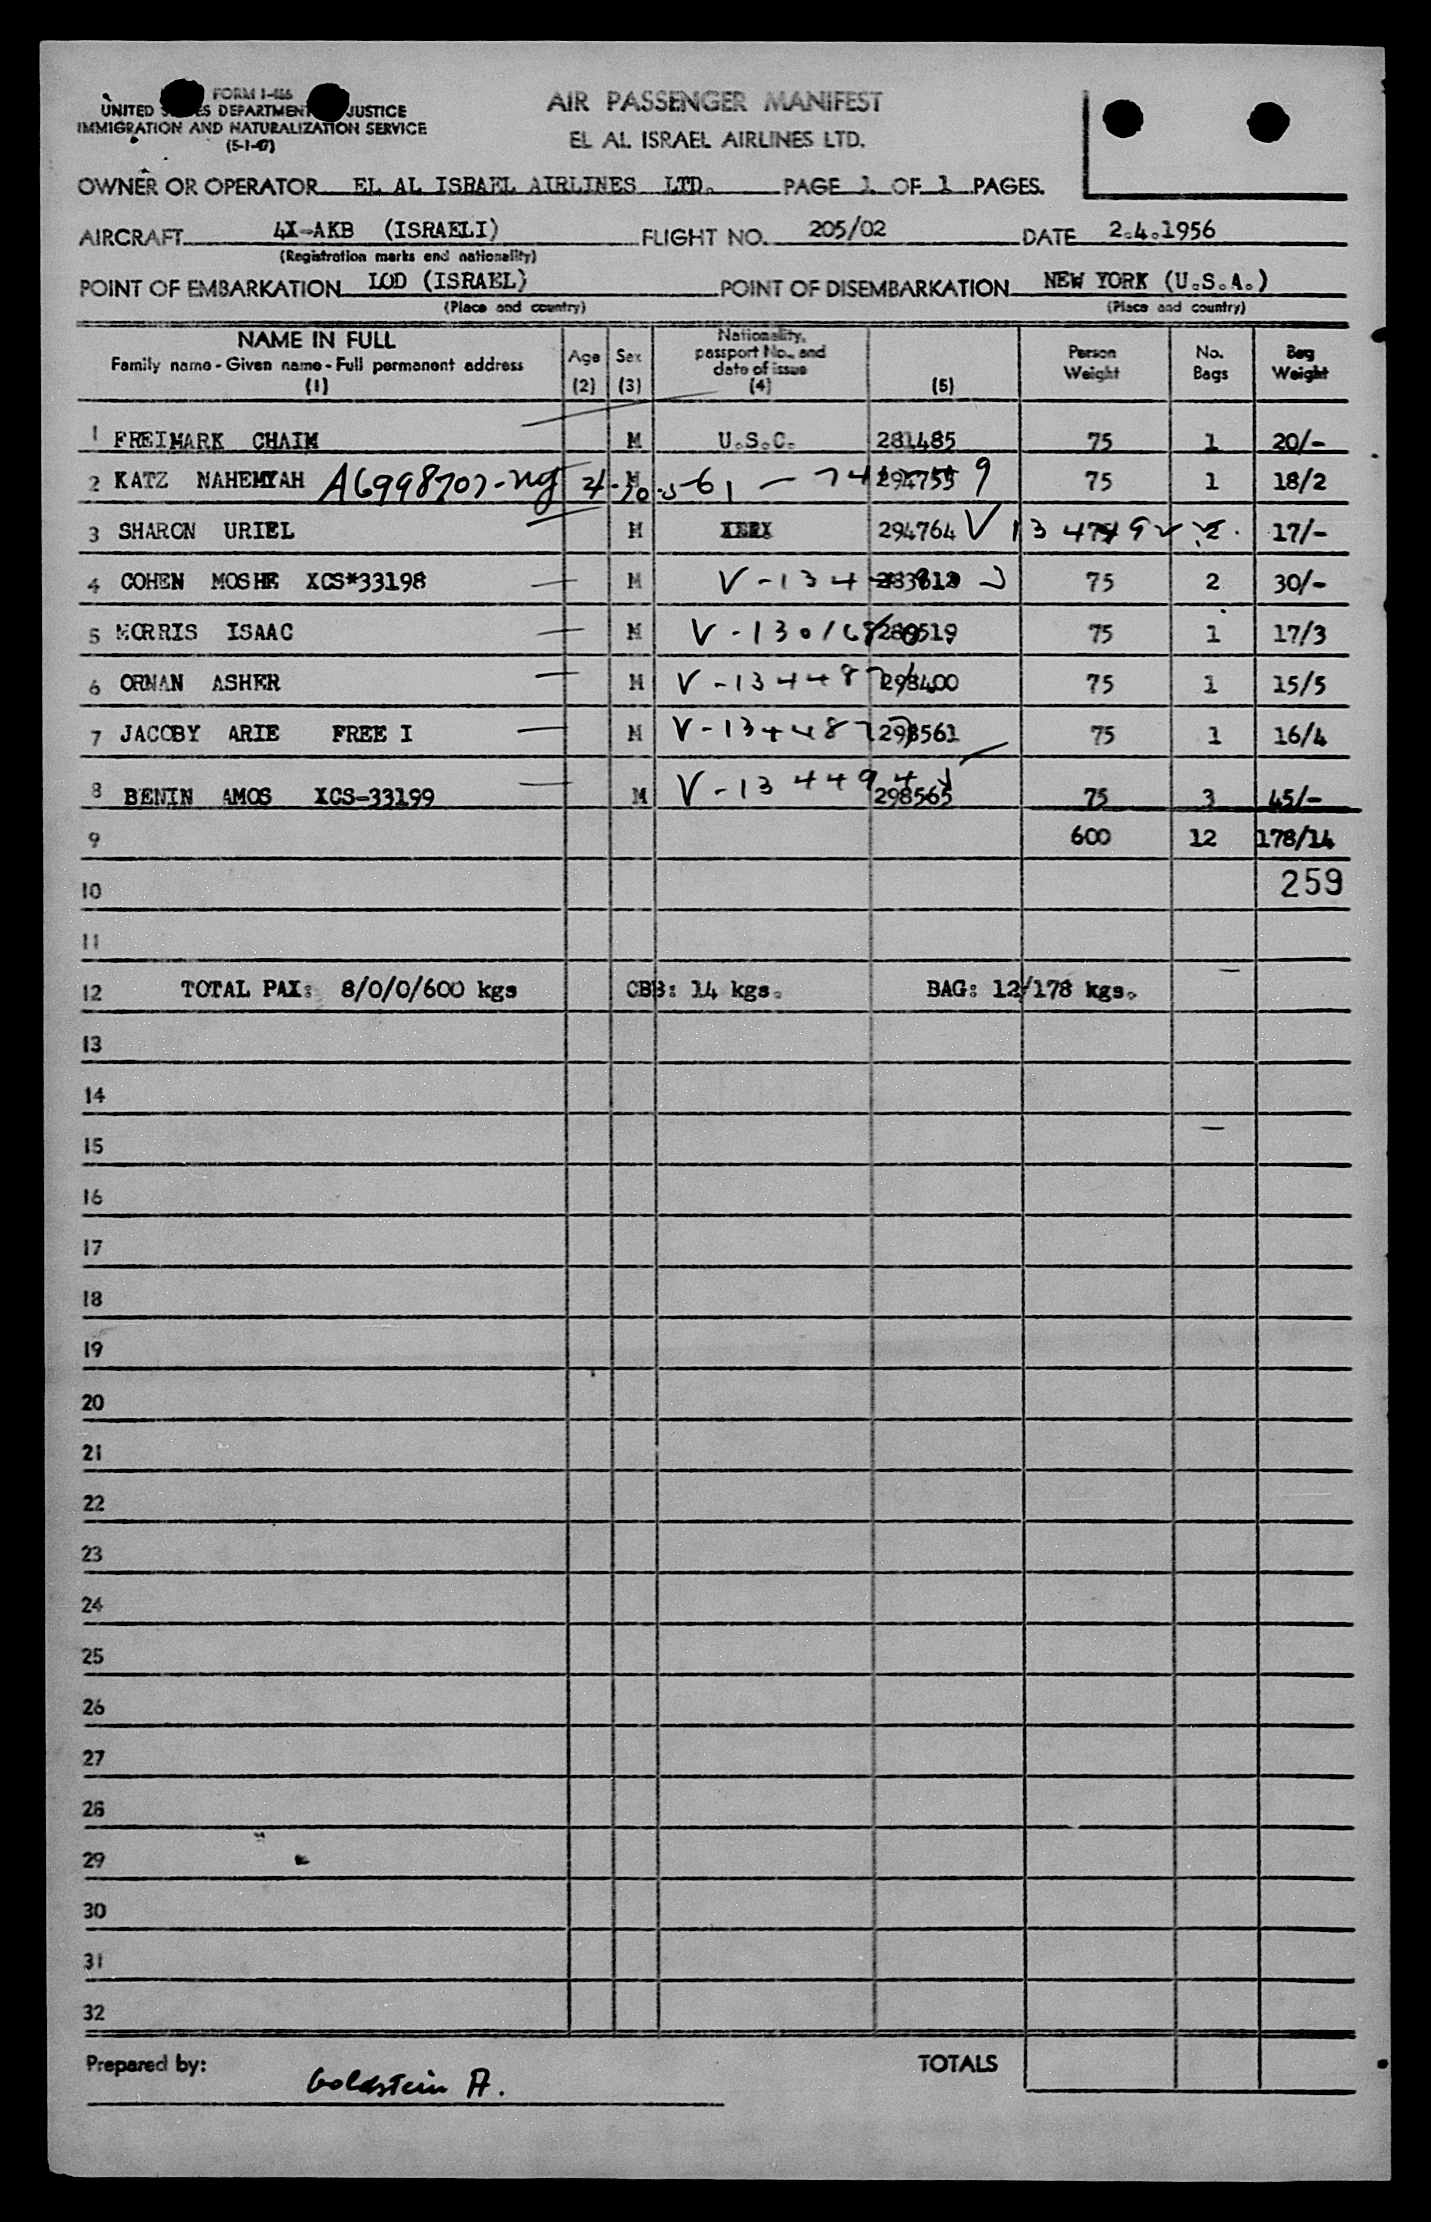 FORM I-466
UNITED STATES DEPARTMENT JUSTICE
IMMIGRATION AND NATURALIZATION SERVICE
(5-1-47)
AIR PASSENGER MANIFEST
EL AL ISRAEL AIRLINES LTD.
OWNER OR OPERATOR EL AL ISRAEL AIRLINES LTD. PAGE 1 OF 1 PAGES.
AIRCRAFT 4X-AKB (ISRAELI) FLIGHT NO. 205/02 DATE 2.4.1956
(Registration marks and nationality)
POINT OF EMBARKATION LOD (ISRAEL) POINT OF DISEMBARKATION NEW YORK (U.S.A.)
(Place and country) (Place and country)
NAME IN FULL
Family name - Given name - Full permanent address
(1)
Age
(2)
Sex
(3)
Nationality,
passport No., and
date of issue
(4)
(5)
Person
Weight
No.
Bags
Bag
Weight
1 FREIMARK CHAIM M U.S.C. 281485 75 1 20/-
2 KATZ NAHEMYAH A6998707-ng M 294755 9 75 1 18/2
3 SHARON URIEL M 294764 2 17/-
4 COHEN MOSHE XCS*33198 M 75 2 30/-
5 MORRIS ISAAC M 75 1 17/3
6 ORNAN ASHER M 298400 75 1 15/5
7 JACOBY ARIE FREE I M 298561 75 1 16/4
8 BENIN AMOS XCS-33199 M V-134494 298565 75 3 45/-
9 600 12 178/14
10 259
11
12 TOTAL PAX: 8/0/0/600 kgs CBB: 14 kgs. BAG: 12/178 kgs.
13
14
15
16
17
18
19
20
21
22
23
24
25
26
27
28
29
30
31
32
Prepared by: Goldstein A. TOTALS